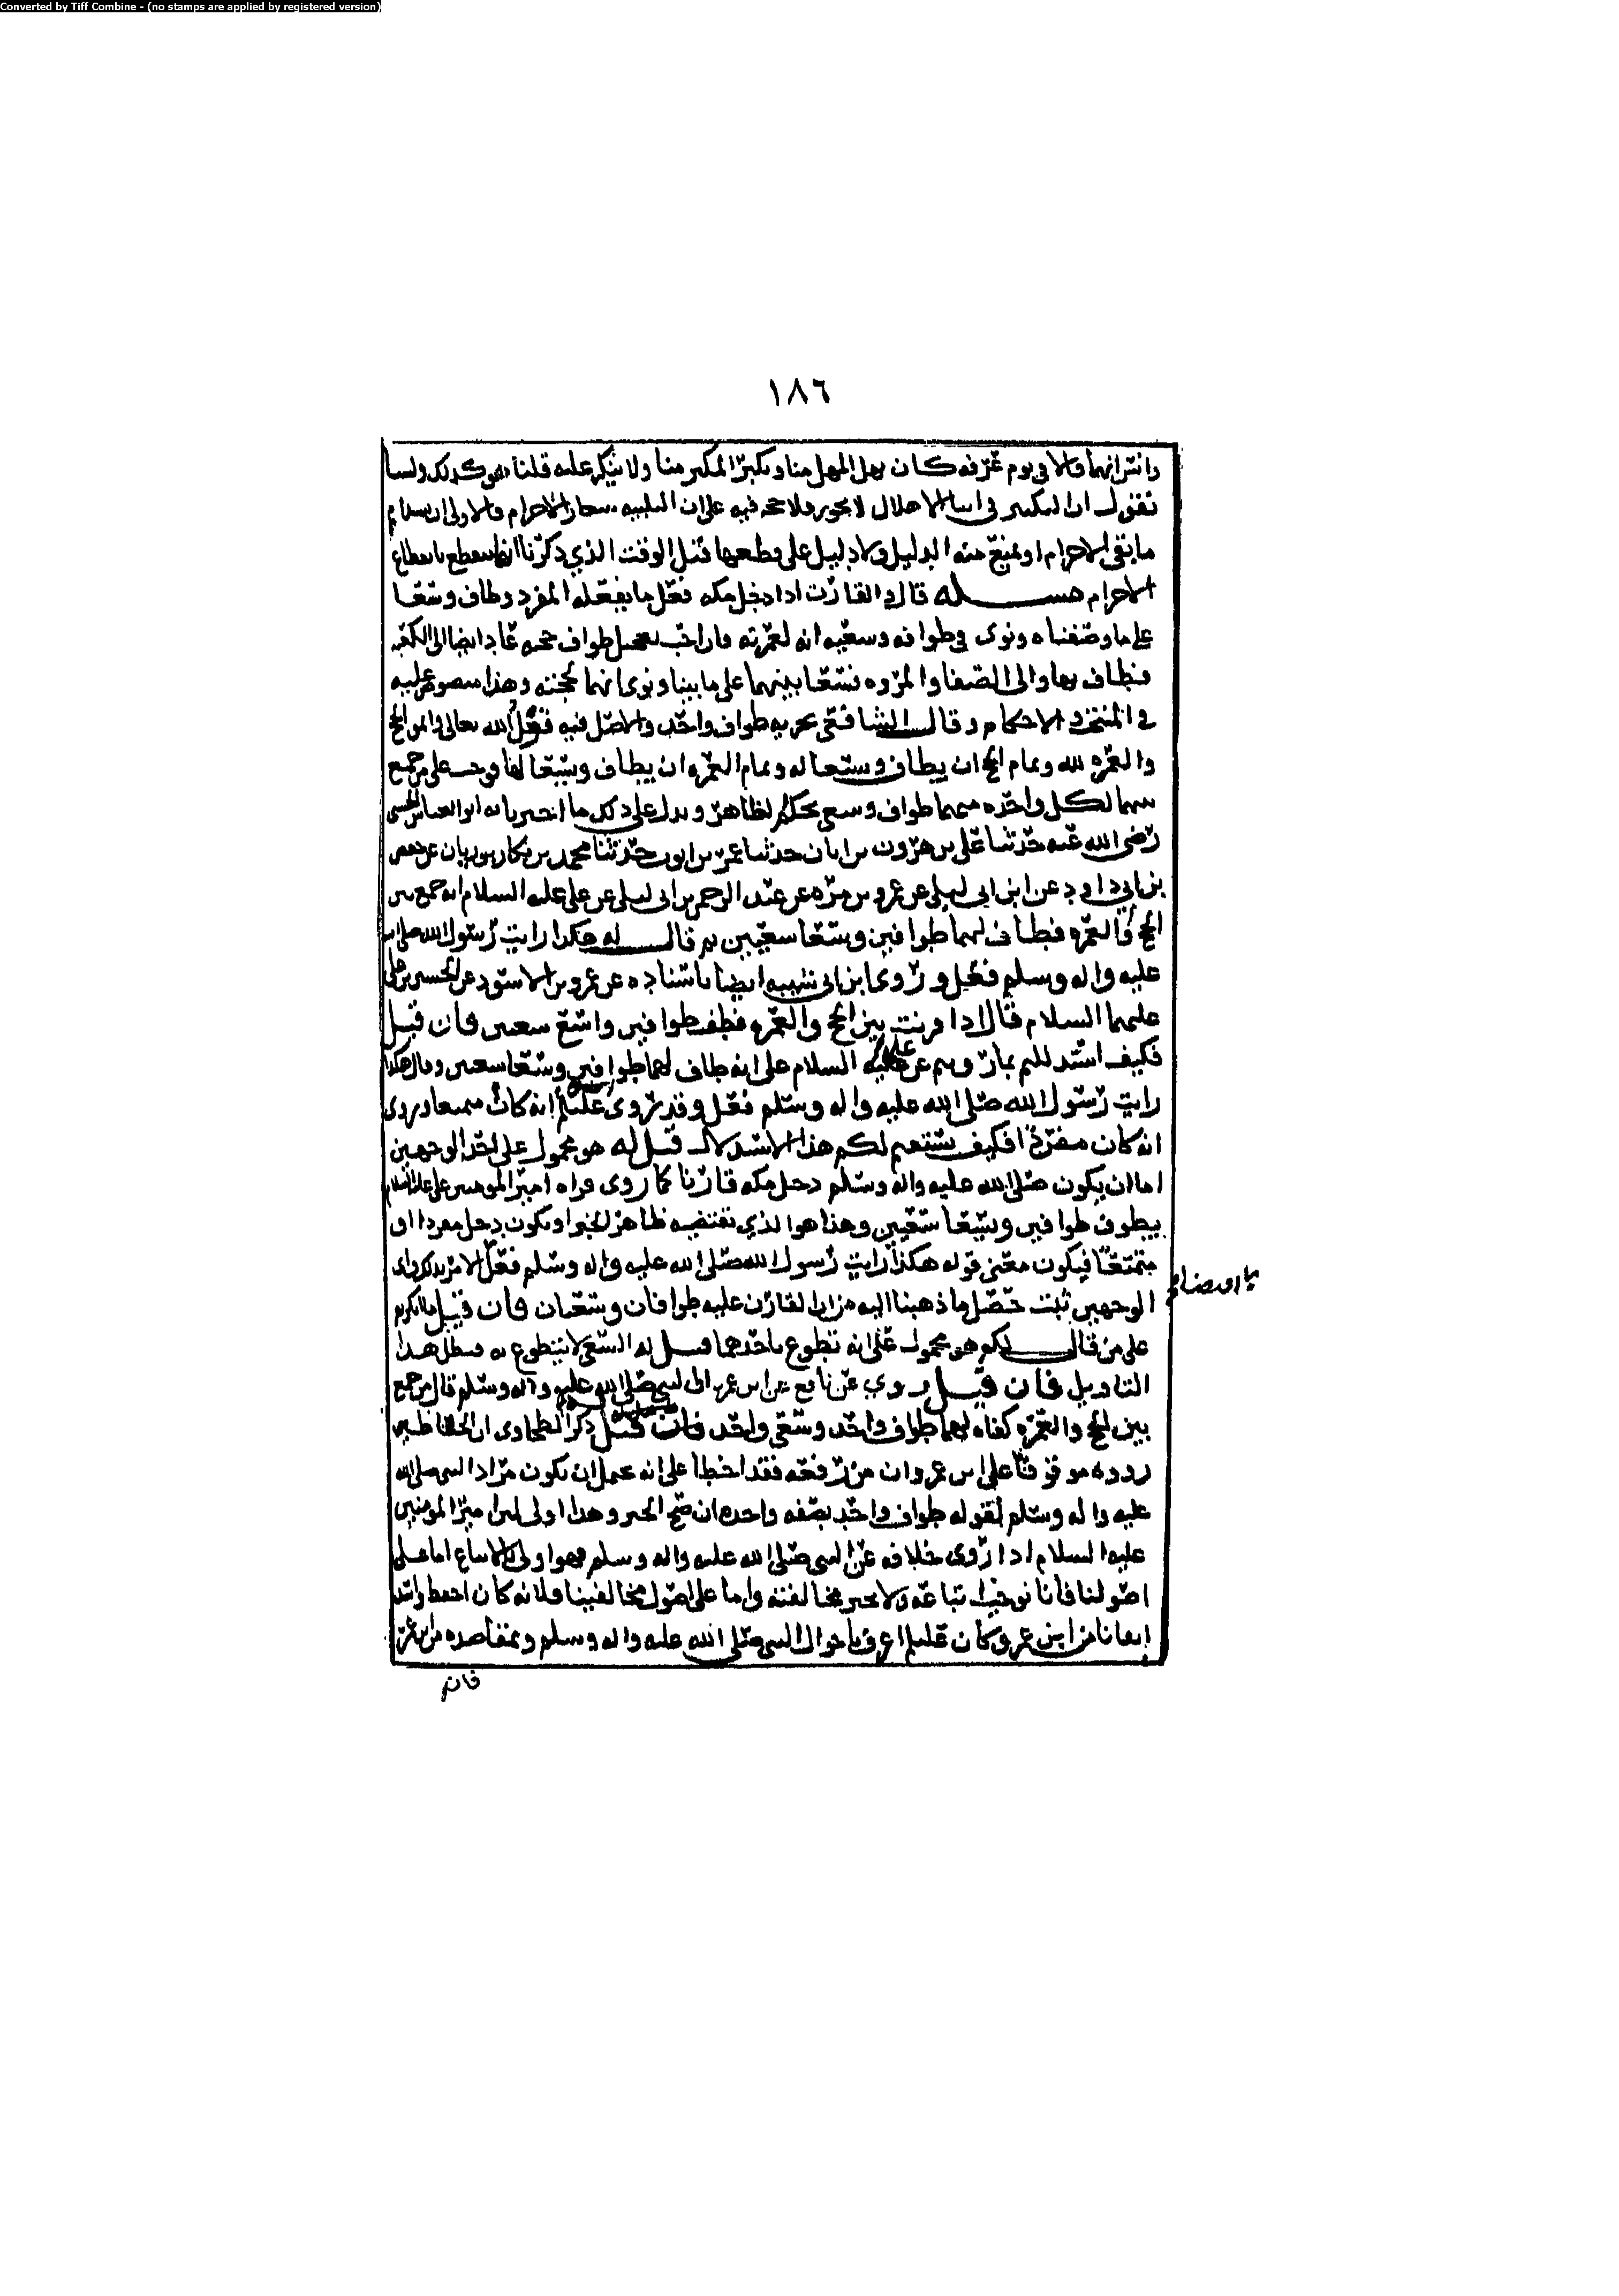 Converted by Tiff Combine - (no stamps are applied by registered version)
١٨٦
وانس انهما قالا في يوم عرفه كان يهل المهل منا ويكبر المكبر منا ولا ينكر عليه قلنا هو كذلك ولسنا
نقول ان التكبير في اثنا الاهلال لا يجوز ولا حجه فيه على ان التلبيه الاحرام والاولى ان
ما بقي الاحرام او يمنع منه الدليل ولا دليل على قطعها قبل الوقت الذي ذكرنا انها تنقطع بانقطاع
الاحرام مسـله قال والقارن اذا دخل مكه فعل ما يفعله المفرد وطاف وسعا
على ما وصفناه ونوى في طوافه وسعيه انه لعمرته فان احب تعجيل طواف حجه عاد ايضا الى الكعبه
فطاف بها والى الصفا والمروه فسعا بينهما على ما بينا ونوى انهما لحجته وهذا منصوص عليه
في المنتخب والاحكام وقال الشافعي يجزيه طواف واحد والاصل فيه قول الله تعالى واتموا الحج
والعمره لله وتمام الحج ان يطاف وسعا له وتمام العمره ان يطاف ويسعا لها فوجب على من جمع
بينهما لكل واحده منهما طواف وسعي بحكم الظاهر ويدل على ذلك ما اخبرنا به ابو العباس الحسني
رضي الله عنه حدثنا علي بن هرون بن ابان حدثنا عمر بن ايوب حدثنا محمد بن بكار بن ريان عن حفص
بن ابي داود عن ابن ابي ليلى عن عمرو بن مره عن عبد الرحمن بن ابي ليلى عن علي عليه السلام انه جمع بين
الحج والعمره فطاف لهما طوافين وسعا سعيين ثم قال له هكذا رايت رسول الله صلى الله
عليه واله وسلم فعل وروى ابن ابي شيبه ايضا باسناده عن عمرو بن الاسود عن الحسن بن علي
عليهما السلام قال اذا قرنت بين الحج والعمره فطف طوافين واسع سعيين فان قيل
فكيف استدللتم بما رويتم عن علي عليه السلام على انه طاف لهما طوافين وسعا سعيين وقال هكذا
رايت رسول الله صلى الله عليه واله وسلم فعل وقد روى عليلم انه كان متمتعا وروي
انه كان مفردا فكيف يستقيم لكم هذا الاستدلال قيل له هو محمول على احد الوجهين
اما ان يكون صلى الله عليه واله وسلم دخل مكه قارنا كما روي فراه امير المومنين علي عليه السلام
يطوف طوافين ويسعا سعيين وهذا هو الذي تقتضيه ظاهر الخبر او يكون دخل مفردا او
متمتعا فيكون معنى قوله هكذا رايت رسول الله صلى الله عليه واله وسلم فعل الامر بذلك واي
الوجهين ثبت حصل ما ذهبنا اليه من ان القارن عليه طوافان وسعيان فان قيل ما انكرتم
على من قال لكم هو محمول على انه تطوع باحدهما قيل له السعي لا يتطوع به فبطل هذا
التاويل فان قيل روي عن نافع عن ابن عمر ان النبي صلى الله عليه واله وسلم قال من جمع
بين الحج والعمره كفاه لهما طواف واحد وسعي واحد فان قيل ذكر الطحاوي ان الحفاظ
رووه موقوفا على ابن عمر وان من رفعه فقد اخطا على انه يحمل ان يكون مراد النبي صلى الله
عليه واله وسلم بقوله طواف واحد بصفه واحده ان صح الخبر وهذا اولى لان امير المومنين
عليه السلام اذا روى خلافه عن النبي صلى الله عليه واله وسلم فهو اولى بالاتباع اما على
اصولنا فانا نوجب اتباعه ولا نجيز مخالفته واما على اصول مخالفينا فلانه كان احفظ واشد
اتقانا من ابن عمر وكان عليلم اعرف باحوال النبي صلى الله عليه واله وسلم وبمقاصده من ابن عمر
فان